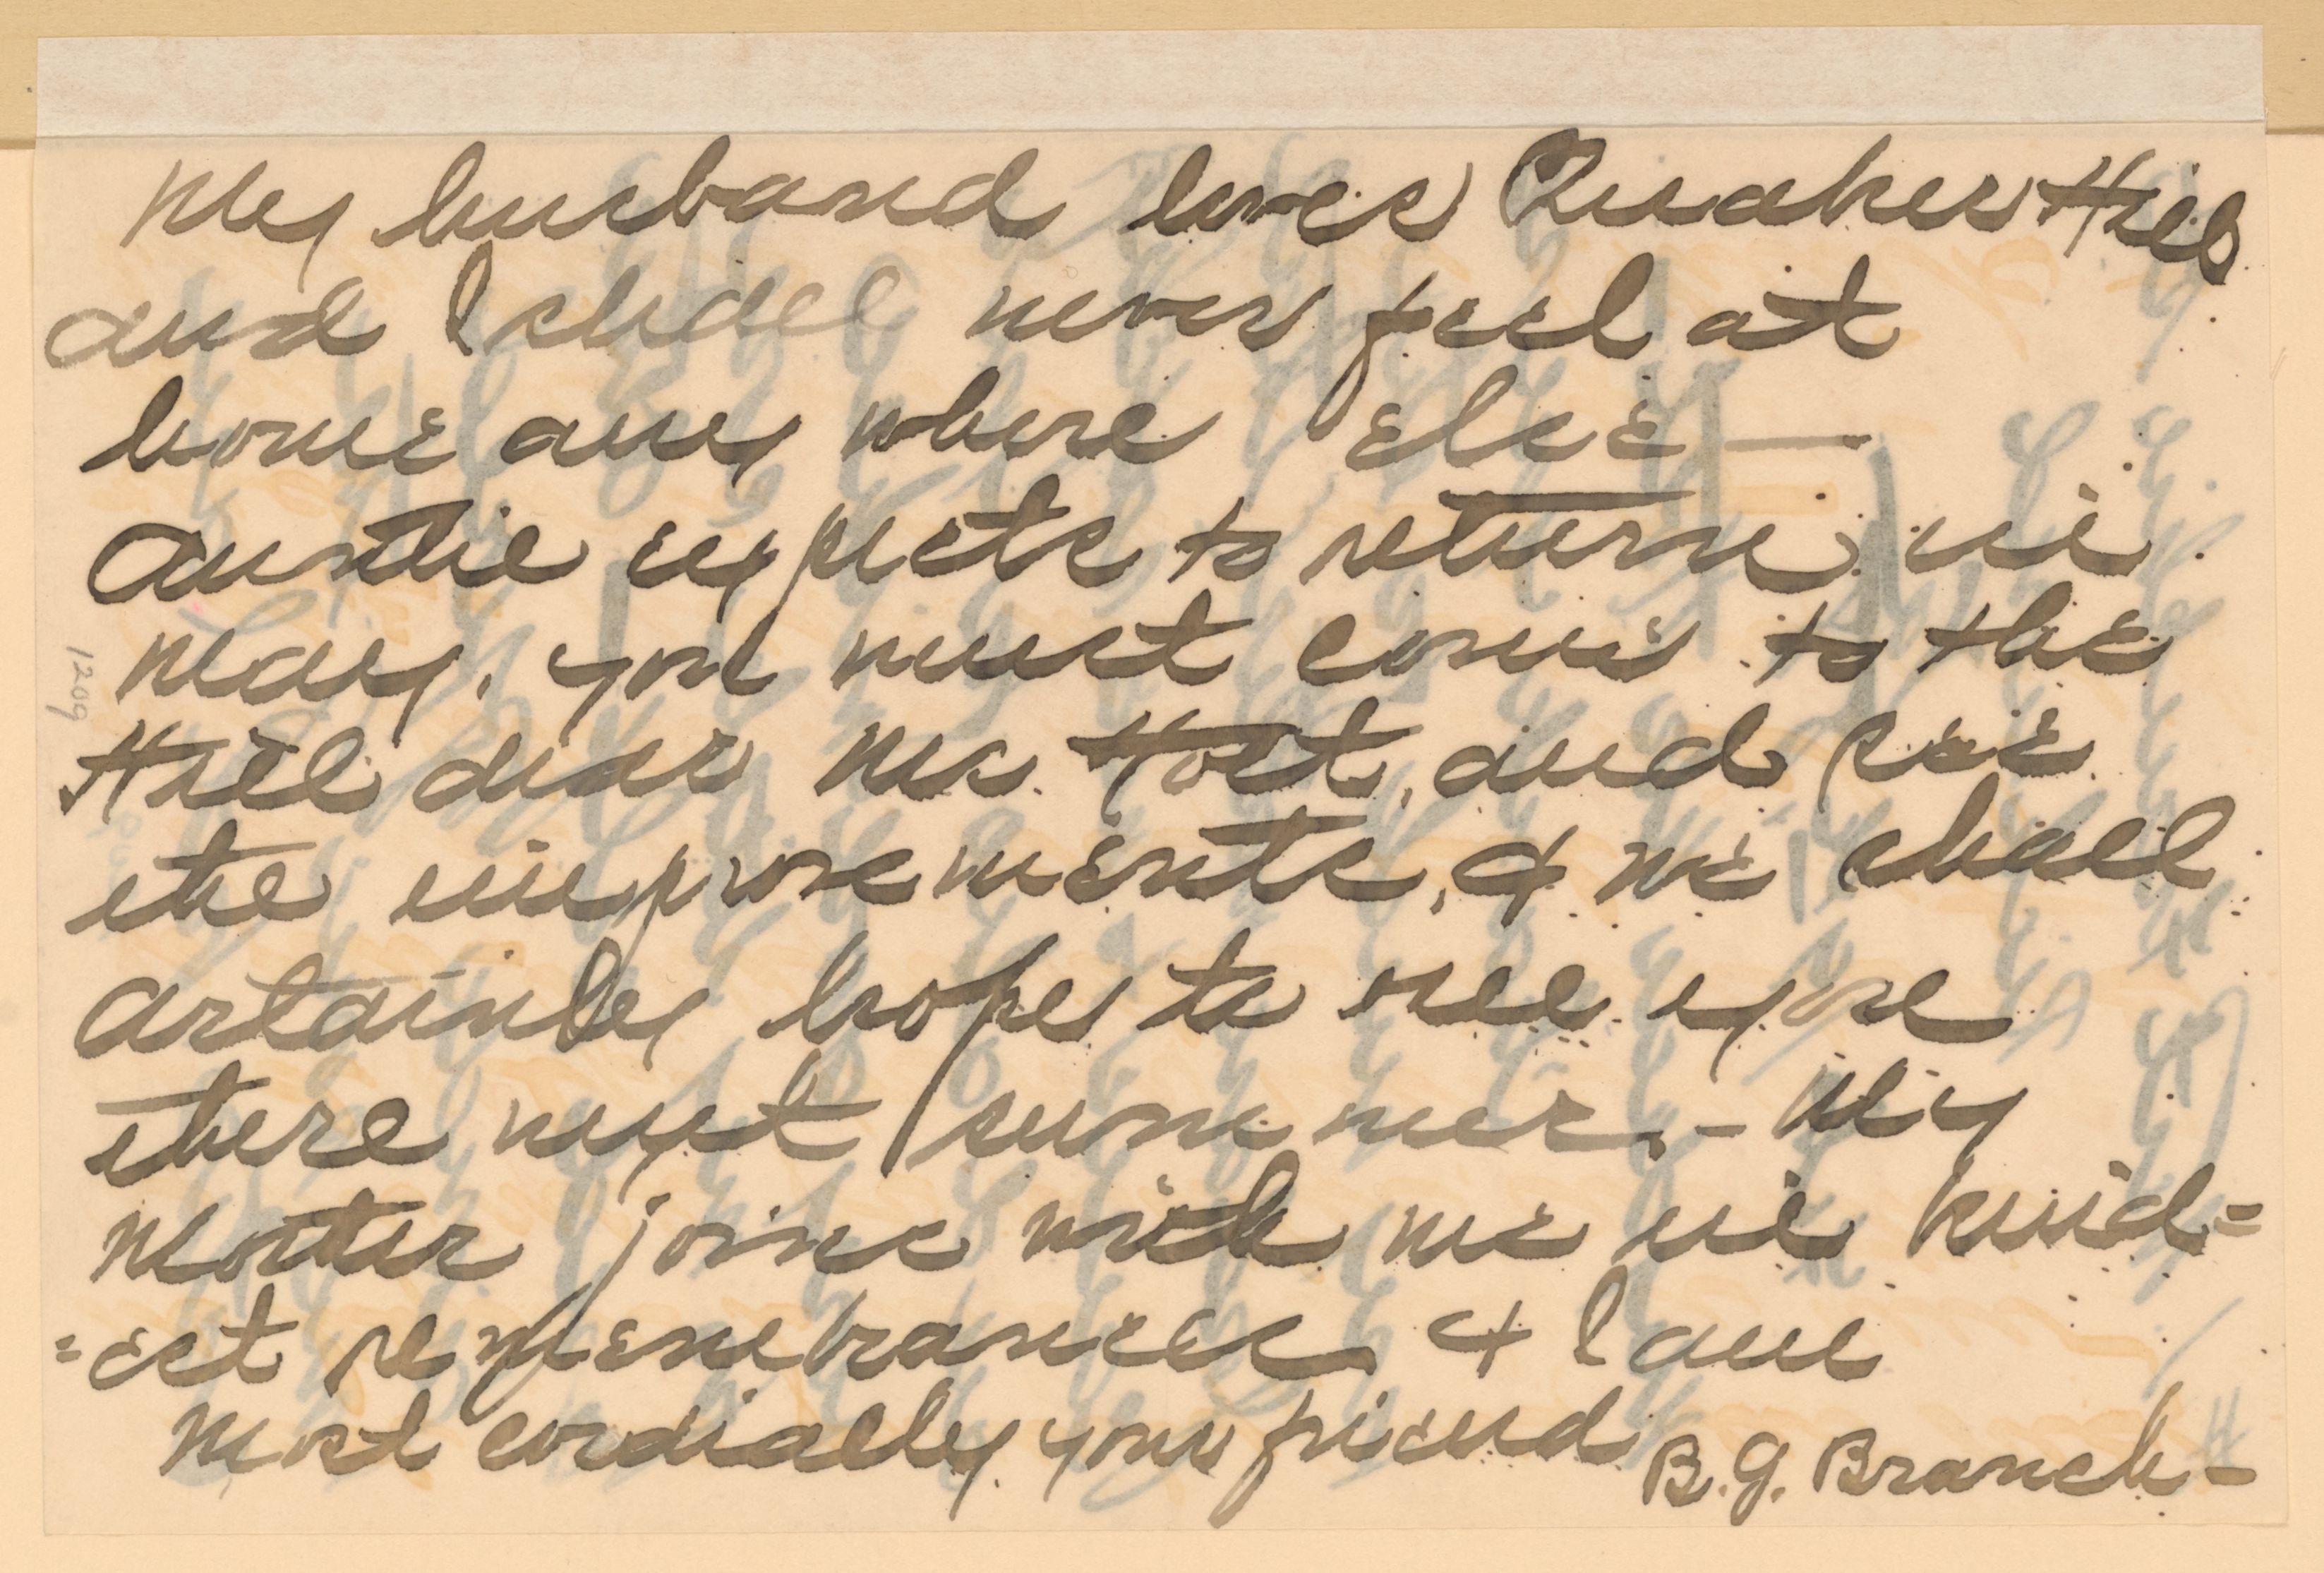 My husband loves Quaker Hill
and I shall never feel at
home any where else —
Auntie expects to return in
May. You must come to the
Hill dear Mr. Hoet, and see
the improvements, & we shall
certainly hope to see you
there next summer. - My
Mother joins with me in kind=
=est remembrances & I am
Most cordially your friend B. G. Branch -
1209